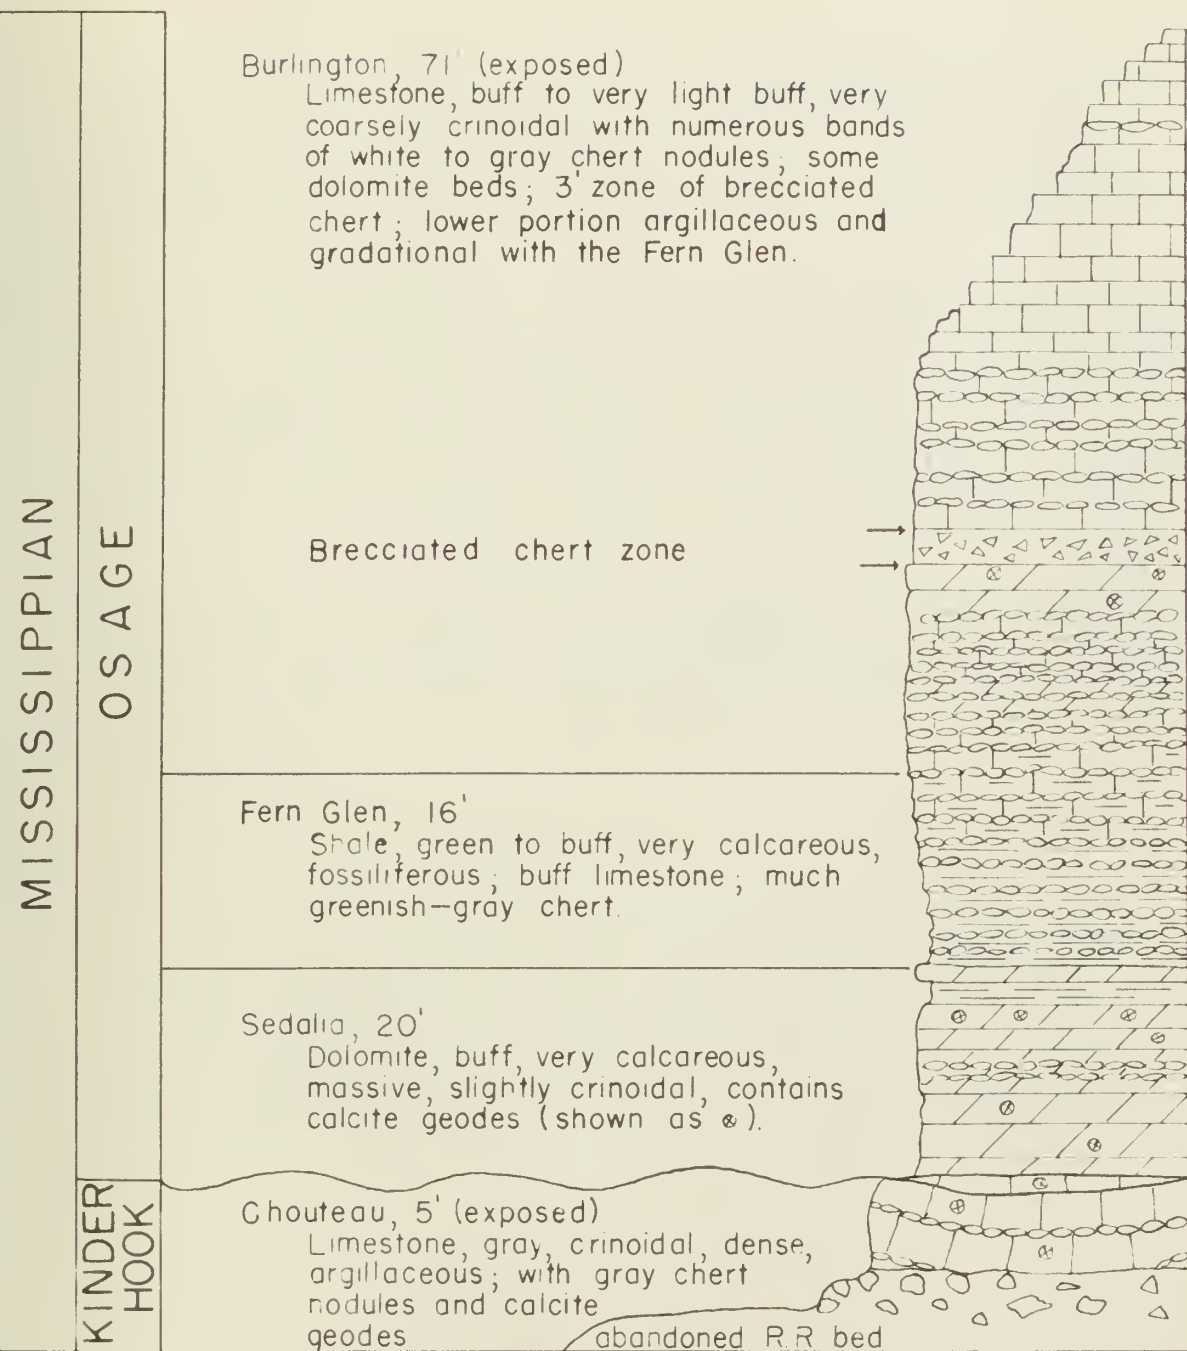 MISSISSIPPIAN
OSAGE
Burlington, 71' (exposed)
Limestone, buff to very light buff, very
coarsely crinoidal with numerous bands
of white to gray chert nodules; some
dolomite beds; 3' zone of brecciated
chert; lower portion argillaceous and
gradational with the Fern Glen.
Brecciated chert zone
Fern Glen, 16'
Shale, green to buff, very calcareous,
fossiliferous; buff limestone; much
greenish-gray chert.
Sedalia, 20'
Dolomite, buff, very calcareous,
massive, slightly crinoidal, contains
calcite geodes (shown as ⊗).
KINDER
HOOK
Chouteau, 5' (exposed)
Limestone, gray, crinoidal, dense,
argillaceous; with gray chert
nodules and calcite
geodes
abandoned R.R bed